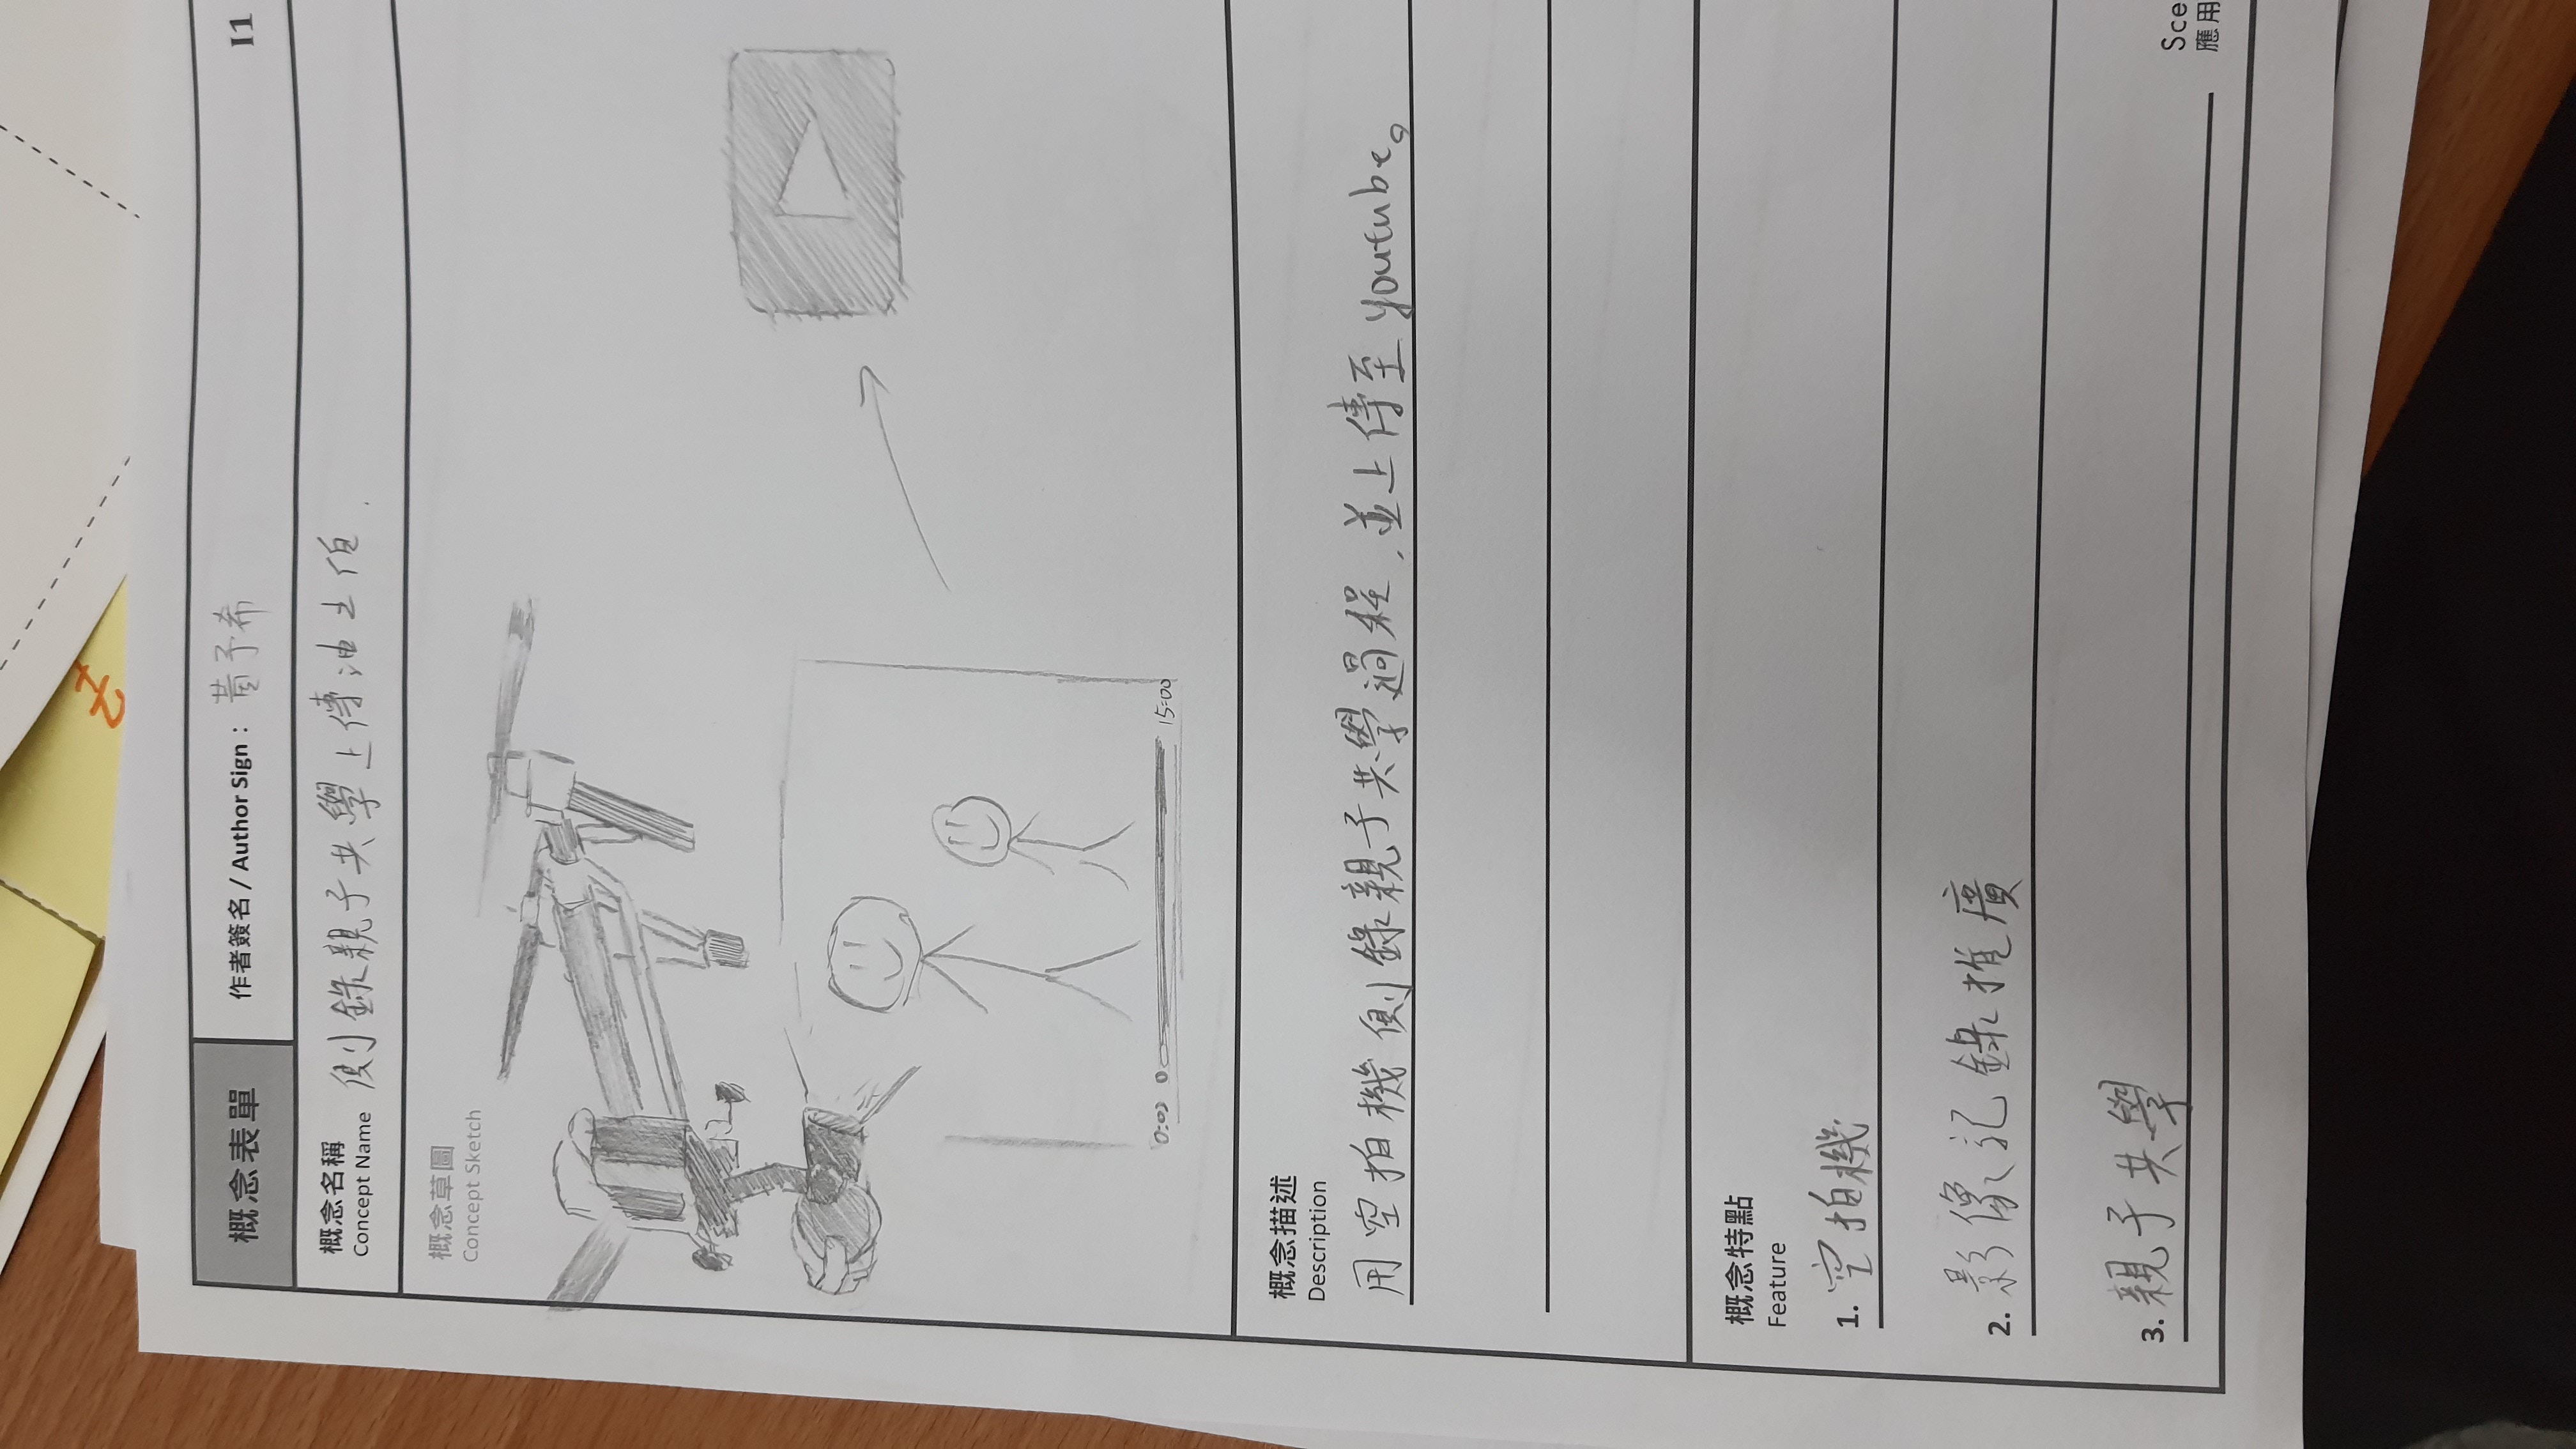 概念表單
作者簽名 / Author Sign： 黃予希
I1
概念名稱
Concept Name
側錄親子共學上傳油土伯.
概念草圖
Concept Sketch
0:00
15:00
概念描述
Description
用空拍機側錄親子共學過程,並上傳至youtube。
概念特點
Feature
1. 空拍機
2. 影像記錄推廣
3. 親子共學
Sce
應用